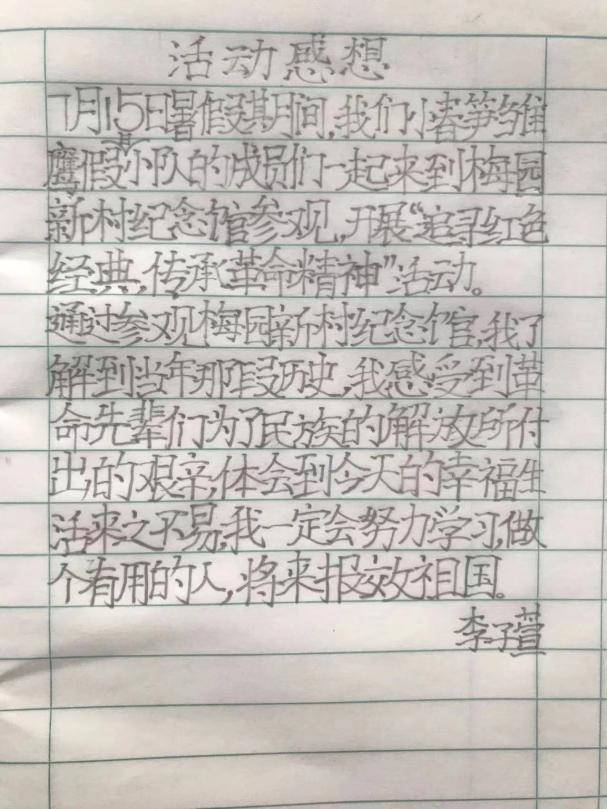 活动感想
7月15日暑假期间,我们小春笋雏
鹰假日小队的成员们一起来到梅园
新村纪念馆参观,开展“追寻红色
经典,传承革命精神”活动。
通过参观梅园新村纪念馆,我了
解到当年那段历史,我感受到革
命先辈们为了民族的解放所付
出的艰辛,体会到今天的幸福生
活来之不易,我一定会努力学习,做
个有用的人,将来报效祖国。
李子萱